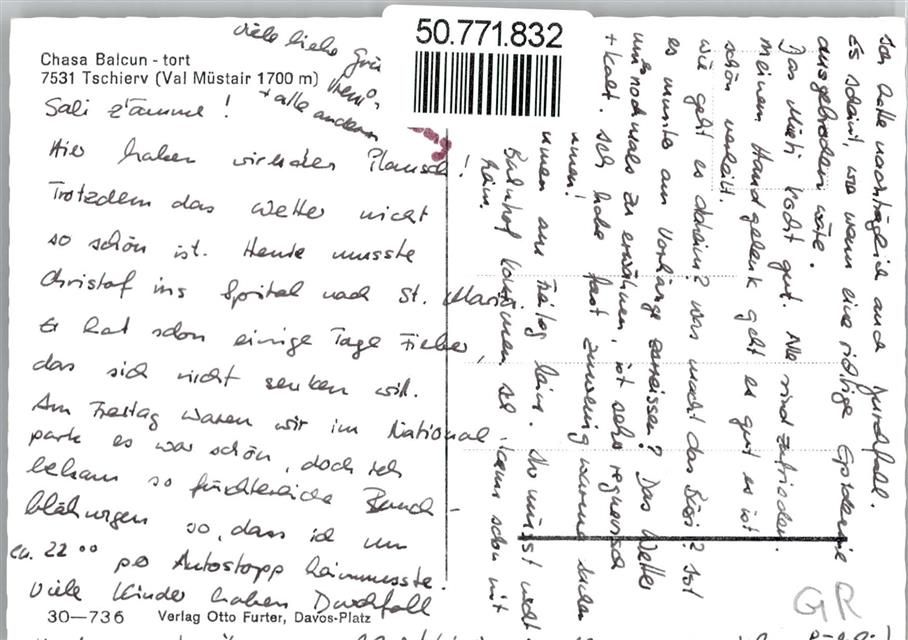 viele liebe Grü
Chasa Balcun - tort
7531 Tschierv (Val Müstair 1700 m)
+ alle andern
50.771.832
Sali z'ämme!
Hier haben wir den Plausch!
Trotzdem das Wetter nicht
so schön ist. Heute musste
Christof ins Spital nach St. Maria.
Er hat schon einige Tage Fieber,
das sich nicht senken will.
Am Freitag waren wir im National
park es war schön, doch ich
bekam so fürchterliche Bauch-
blähungen so, dass ich um
ca. 22 00 per Autostopp heimmusste.
Viele Kinder haben Durchfall
30—736 Verlag Otto Furter, Davos-Platz
Ich hatte nachträglich auch Durchfall.
Es scheint, wie wenn eine richtige Epidemie
ausgebrochen wäre.
Das Müeti kocht gut. Alle sind zufrieden.
Meinem Handgelenk geht es gut es ist
schön verheilt.
Wie geht es daheim? Was macht das Büsi? Ist
es munter am Vorhänge zerreissen? Das Wetter
um es nochmals zu erwähnen, ist sehr regnerisch
+ kalt. Ich habe fast zuwenig warme Sachen
am Freitag heim. Du müsst nicht
Bahnhof kommen ich kann schon mit
heim.
GR